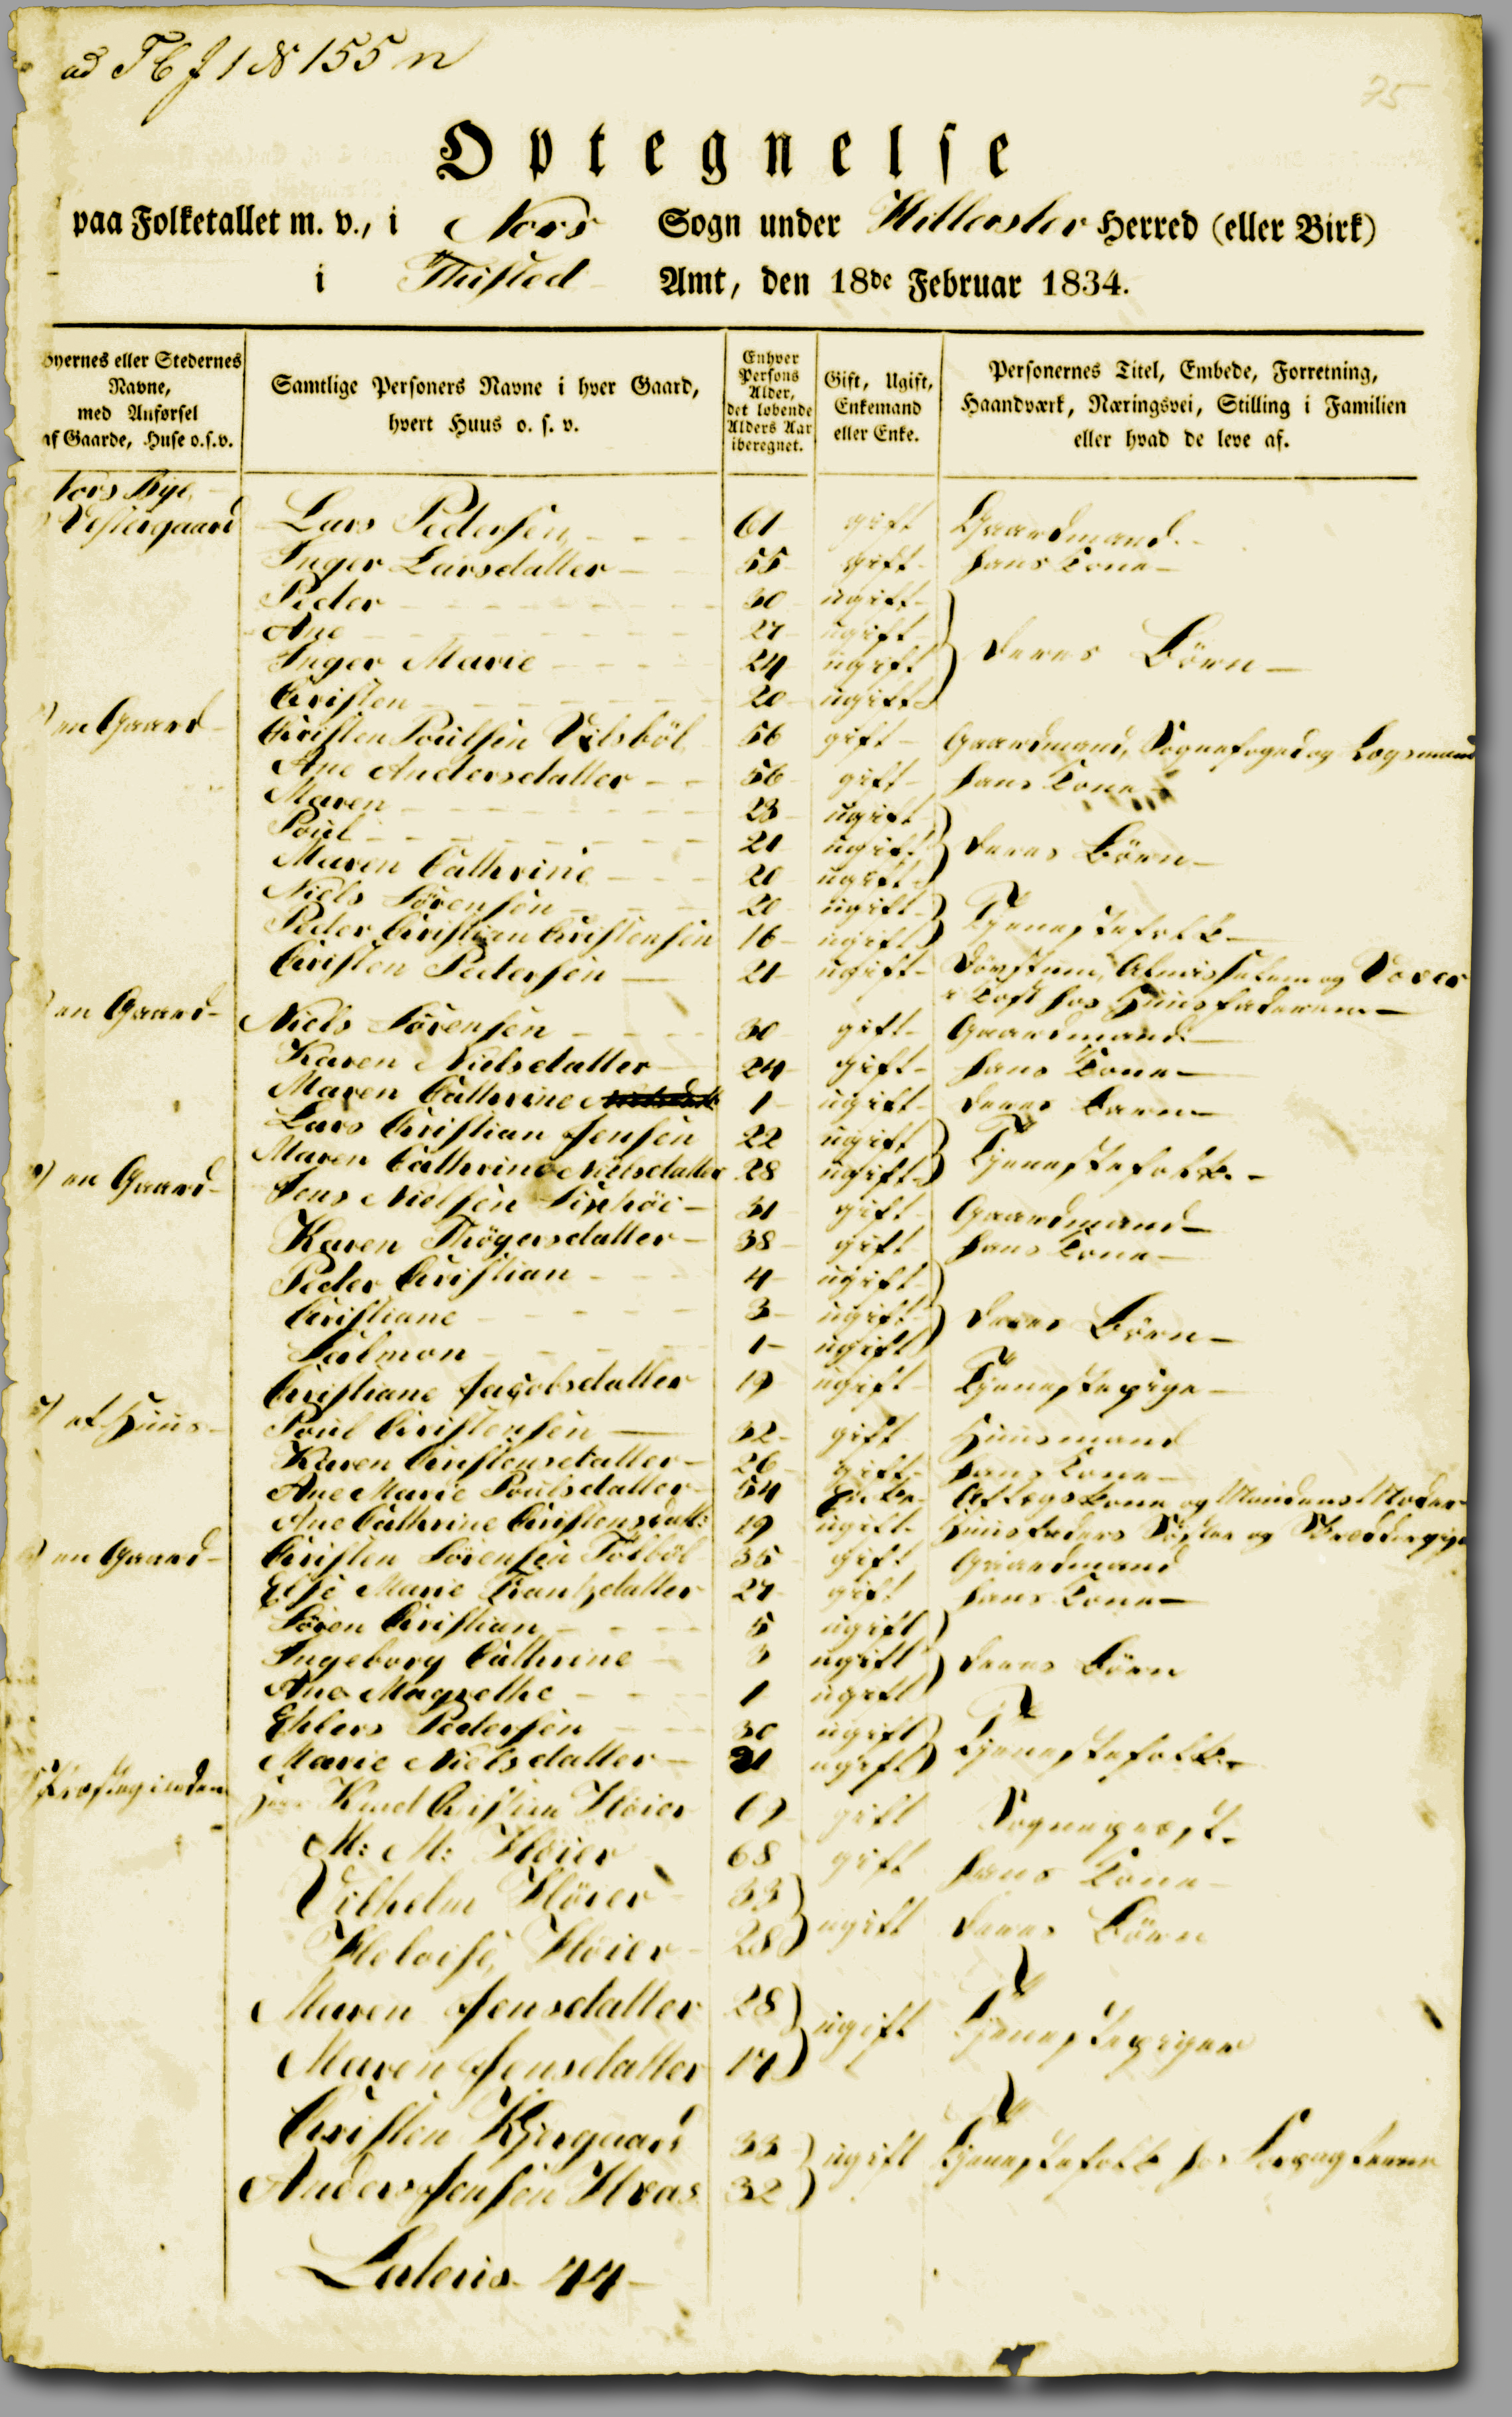 ad Tb J 1 № 155 n
75
Optegnelse
paa Folketallet m. v., i Nors Sogn under Hillerslev Herred (eller Birk)
i Thisted Amt, den 18de Februar 1834.
byernes eller Stedernes Navne, med Anførsel af Gaarde, Huse o.s.v.
Samtlige Personers Navne i hver Gaard, hvert Huus o. s. v.
Enhver Persons Alder, det løbende Alders Aar iberegnet.
Gift, Ugift, Enkemand eller Enke.
Personernes Titel, Embede, Forretning, Haandværk, Næringsvei, Stilling i Familien eller hvad de leve af.
Nors Bye
Vestergaard Lars Pedersen 61 gift Gaardmand
Inger Larsdatter 55 gift hans Kone
Peder 30 ugift
Ane 27 ugift
Inger Marie 24 ugift deres Börn
Cristen 20 ugift
en Gaard Cristen Poulsen Vilsböl 56 gift Gaardmand, Sognefoged og Lægsmand
Ane Andersdatter 56 gift hans Kone
Maren 23 ugift
Poul 21 ugift deres Börn
Maren Cathrine 20 ugift
Niels Sörensen 20 ugift Tjenestefolk
Peder Cristian Cristensen 16 ugift
Cristen Pedersen 21 ugift Dövstum, Almisselem og
i Kost hos Huusfaderen
en Gaard Niels Sörensen 30 gift Gaardmand
Karen Nielsdatter 24 gift hans Kone
Maren Cathrine 1 ugift deres Barn
Lars Cristian Jensen 22 ugift Tjenestefolk
Maren Cathrine Nielsdatter 28 ugift
en Gaard Jens Nielsen Sixhöi 31 gift Gaardmand
Karen Thögersdatter 38 gift hans Kone
Peder Cristian 4 ugift
Cristiane 3 ugift deres Börn
Salmon 1 ugift
Cristiane Jacobsdatter 19 ugift Tjenestepige
et Huus Poul Cristensen 32 gift Huusmand
Karen Cristensdatter 26 gift hans Kone
Ane Marie Poulsdatter 54 Enke Aftegskone og Mandens Moder
Ane Cathrine Cristensdatt: 19 ugift Huusfaders Söster og Skrædderpige
en Gaard Cristen Sörensen Tölböl 35 gift Gaardmand
Else Marie Frantzdatter 27 gift hans Kone
Sören Cristian 5 ugift
Ingeborg Cathrine 3 ugift deres Börn
Ane Magrethe 1 ugift
Ehlers Pedersen 30 ugift Tjenestefolk
Marie Nielsdatter 21 ugift
Præstegaarden Knud Cristian Höier 69 gift Sognepræst
M: M: Höier 68 gift hans Kone
Vilhelm Höier 33
Heloise Höier 28 ugift deres Börn
Maren Jensdatter 28 ugift Tjenestepiger
Maren Jensdatter 17
Cristen Kjergaard 33 ugift Tjenestefolk hos Forpagteren
Anders Jensen Hvas 32
Lateris 44